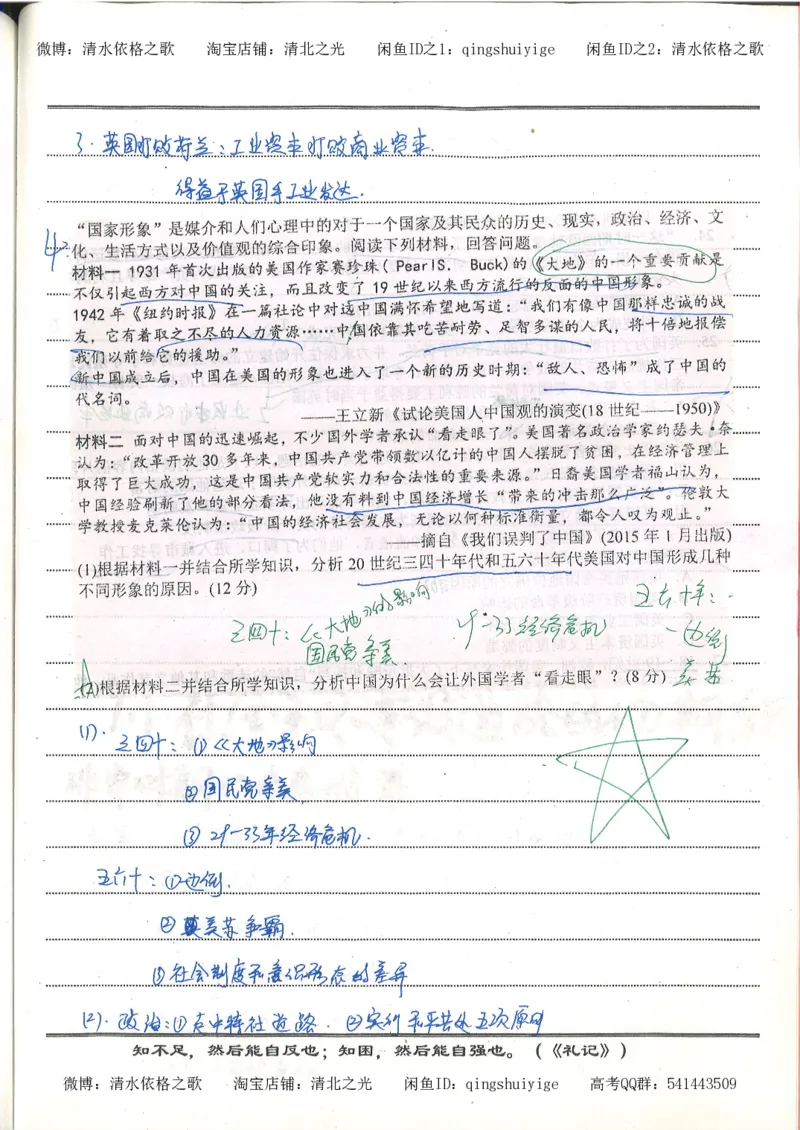 微博：清水依格之歌 淘宝店铺：清北之光 闲鱼ID之1：qingshuiyige 闲鱼ID之2：清水依格之歌
3. 英国打败荷兰：工业资本打败商业资本.
得益于英国手工业发达.
4.
“国家形象”是媒介和人们心理中的对于一个国家及其民众的历史、现实，政治、经济、文
化、生活方式以及价值观的综合印象。阅读下列材料，回答问题。
材料一 1931年首次出版的美国作家赛珍珠( PearlS. Buck)的《大地》的一个重要贡献是
不仅引起西方对中国的关注，而且改变了19世纪以来西方流行的反面的中国形象。
1942年《纽约时报》在一篇社论中对远中国满怀希望地写道：“我们有像中国那样忠诚的战
友，它有着取之不尽的人力资源……中国依靠其吃苦耐劳、足智多谋的人民，将十倍地报偿
我们以前给它的援助。”
新中国成立后，中国在美国的形象也进入了一个新的历史时期：“敌人、恐怖”成了中国的
代名词。
——王立新《试论美国人中国观的演变(18世纪——1950)》
材料二 面对中国的迅速崛起，不少国外学者承认“看走眼了”。美国著名政治学家约瑟夫·奈
认为：“改革开放30多年来，中国共产党带领数以亿计的中国人摆脱了贫困，在经济管理上
取得了巨大成功，这是中国共产党软实力和合法性的重要来源。”日裔美国学者福山认为，
中国经验刷新了他的部分看法，他没有料到中国经济增长“带来的冲击那么广泛”。伦敦大
学教授麦克莱伦认为：“中国的经济社会发展，无论以何种标准衡量，都令人叹为观止。”
——摘自《我们误判了中国》(2015年1月出版)
(1)根据材料一并结合所学知识，分析20世纪三四十年代和五六十年代美国对中国形成几种
不同形象的原因。(12分)
三四十：《大地》的影响
国民党亲美.
29-33经济危机
五六十：
一边倒
美苏
(2)根据材料二并结合所学知识，分析中国为什么会让外国学者“看走眼”？(8分)
(1). 三四十：①《大地》影响
②国民党亲美
③29-33年经济危机.
五六十：①一边倒.
②美苏争霸.
③社会制度和意识形态的差异
(2). 政治：①走中特社道路. ②实行和平共处五项原则
知不足，然后能自反也；知困，然后能自强也。（《礼记》）
微博：清水依格之歌 淘宝店铺：清北之光 闲鱼ID：qingshuiyige 高考QQ群：541443509